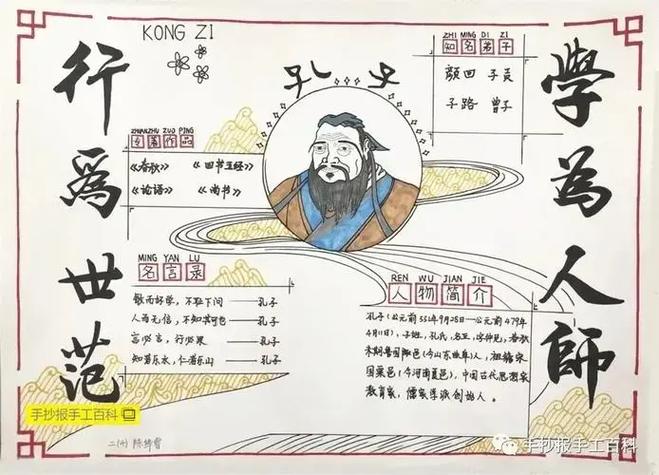 KONG ZI
孔子
學為人師
行爲世范
ZHI MING DI ZI
知名弟子
颜回 子贡
子路 曾子
ZHUANZHU ZUO PING
专著作品
《春秋》 《四书五经》
《论语》 《尚书》
MING YAN LU
名言录
敏而好学，不耻下问——孔子
人而无信，不知其可也——孔子
言必言，行必果——孔子
知者乐水，仁者乐山——孔子
REN WU JIAN JIE
人物简介
孔子（公元前551年9月28日—公元前479年
4月11日），子姓，孔氏，名丘，字仲尼，春秋
末期鲁国陬邑（今山东曲阜）人，祖籍宋
国栗邑（今河南夏邑），中国古代思想家
教育家，儒家学派创始人。
手抄报手工百科
手抄报手工百科